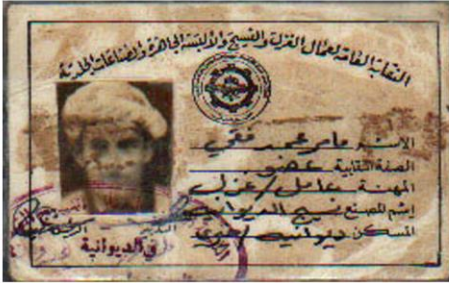 النقابة العامة لعمال الغزل والنسيج والألبسة الجاهزة والصناعات الجلدية
الاسم عامر محمد
الصفة النقابية عضو
المهنة عامل / غزل
إسم المصنع نسيج الديوانية
المسكن ديوانية /
المدير
الديوانية